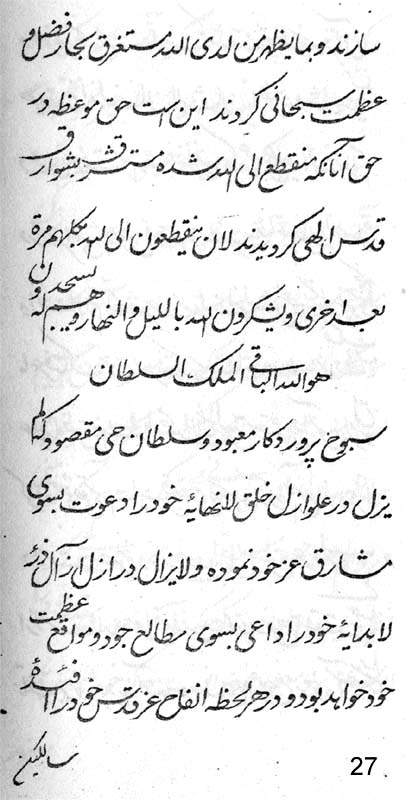 سازند و بما يظهر من لدى الله مستغرق بحار فضل و
عظمت سبحانی کردند این است حق موعظه در
حق آنانکه منقطع الی الله شده مستشرق بشوارق
قدس الهی کردیدند لان ینقطعون الی الله بکلهم مرة
بعد اخری و یشکرون الله بالليل والنهار و هم له یسجدون
هو الله الباقی الملک السلطان
سبوح پروردکار معبود و سلطان حی مقصود
یزل در علو ازل خلق لانهایهٔ خود را دعوت بسوی
مشارق عز خود نموده و لایزال در ازل ازآل
لابدایهٔ خود را داعی بسوی مطالع جود و مواقع عظمت
خود خواهد بود و در هر لحظه عز قدس خود را افئدهٔ
سالکین
27